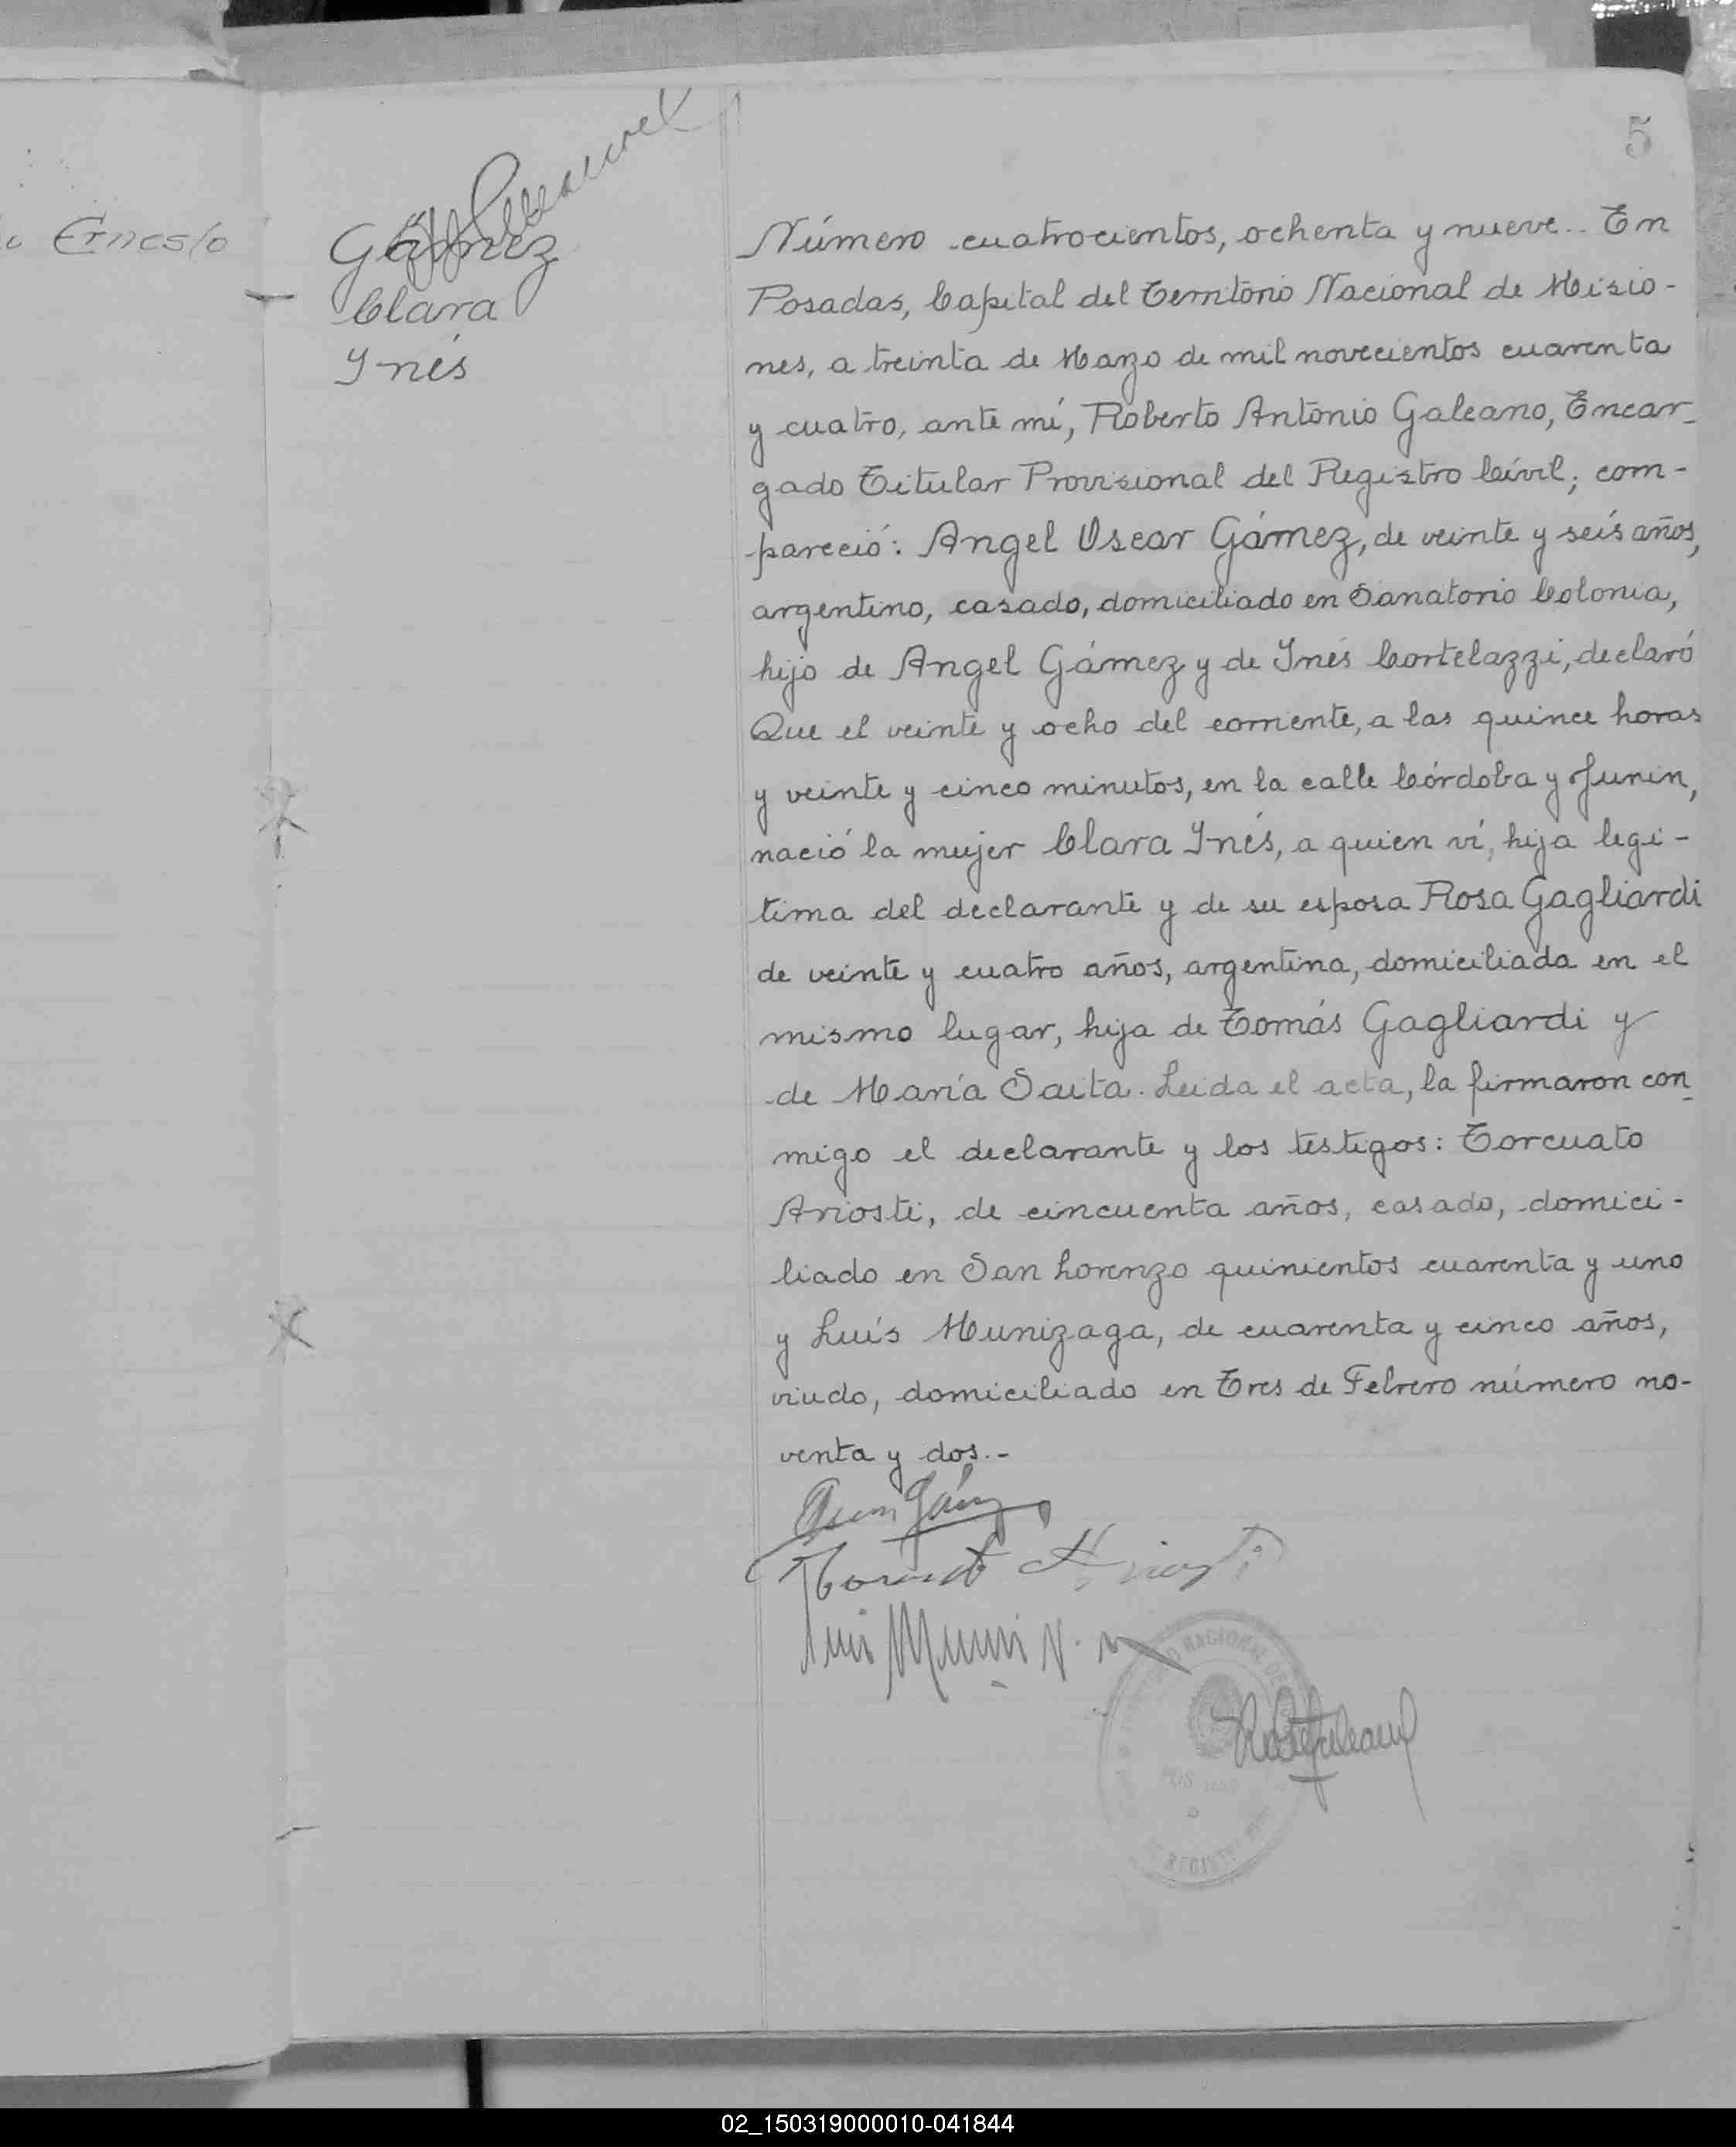 5
Ernesto
Gámez
Clara
Ynés
Número cuatrocientos, ochenta y nueve.. En
Posadas, Capital del Territorio Nacional de Misio-
nes, a treinta de Marzo de mil novecientos cuarenta
y cuatro, ante mí, Roberto Antonio Galeano, Encar-
gado Titular Provisional del Registro Cívil; com-
pareció: Angel Oscar Gámez, de veinte y seis años,
argentino, casado, domiciliado en Sanatorio Colonia,
hijo de Angel Gámez y de Ynés Cortelazzi, declaró
Que el veinte y ocho del corriente, a las quince horas
y veinte y cinco minutos, en la calle Córdoba y Junin,
nació la mujer Clara Ynés, a quien ví, hija legi-
tima del declarante y de su esposa Rosa Gagliardi
de veinte y cuatro años, argentina, domiciliada en el
mismo lugar, hija de Tomás Gagliardi y
de María Saita. Leida el acta, la firmaron con-
migo el declarante y los testigos: Torcuato
Ariosti, de cincuenta años, casado, domici-
liado en San Lorenzo quinientos cuarenta y uno
y Luís Munizaga, de cuarenta y cinco años,
viudo, domiciliado en Tres de Febrero número no-
venta y dos.-
Oscar Gámez
Torcuato Ariosti
Luis
NACIONAL DE
REGISTRO
02_150319000010-041844